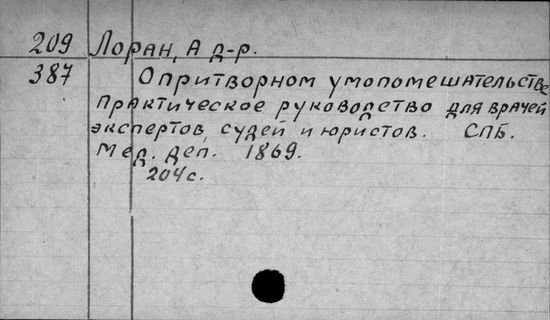 209 Лоран, А д-р.
387 О притворном умопомешательстве
практическое руководство для врачей
экспертов, судей и юристов. СПБ.
Мед. деп. 1869.
204с.